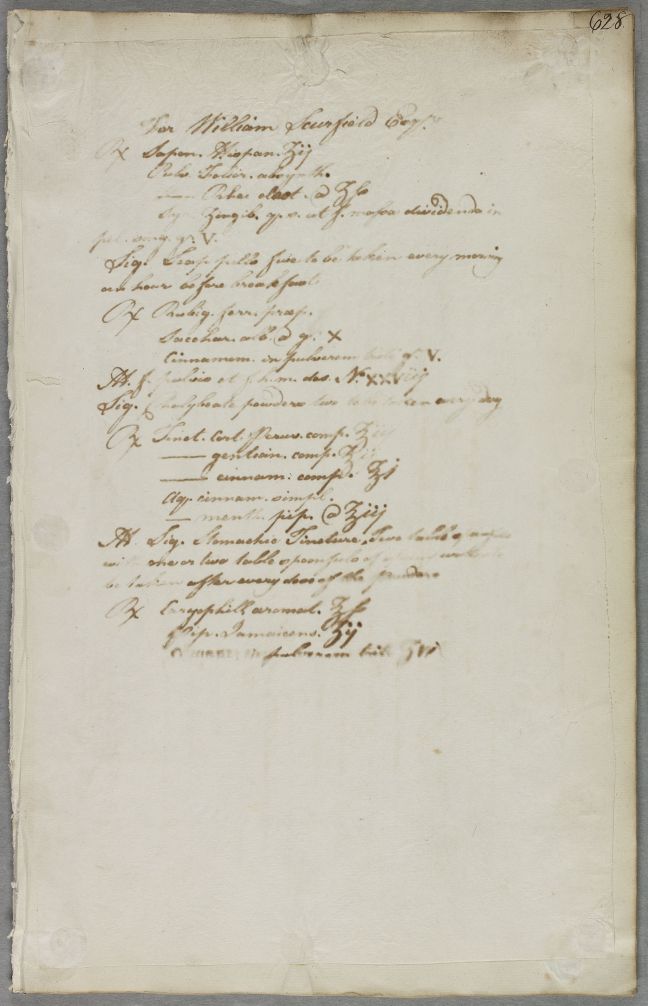 628
For William Scurfield Esqr.
℞ Sapon. Hispan. ʒij
Pulv. absynth.
elect. @ ʒſs
Syr. Zingib. q. s. ut f. massa dividenda in
pil. sing. gr. V.
Sig. Soap pills five to be taken every morning
an hour before breakfast
℞ Rubig. ferr. præp.
Sacchar. alb. @ gr. X
Cinnamom. in pulverem trit. gr. V.
M. f. pulvis et f. h. m. dos. No. XXVIIIj
Sig. Chalybeate powders two to be taken every day
℞ Tinct. Cort. Peruv. comp. ʒiij
—— gentian. comp.
—— cinnam: comp. ʒj
Aq. cinnam. simpl.
— menth. pip. @ ʒiij
M. Sig. Stomachic Tincture. Two table
with one or two table spoonfuls of
be taken after every dose of the Powders
℞ Caryophill. aromat. ʒſs
Pip. Jamaicens. ʒij
in pulverem trit. ʒvi